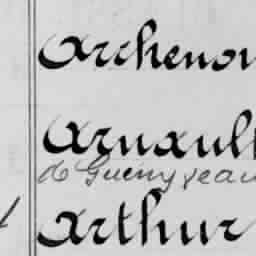 Archenou
Arnault
de Guerry Jean
Arthur